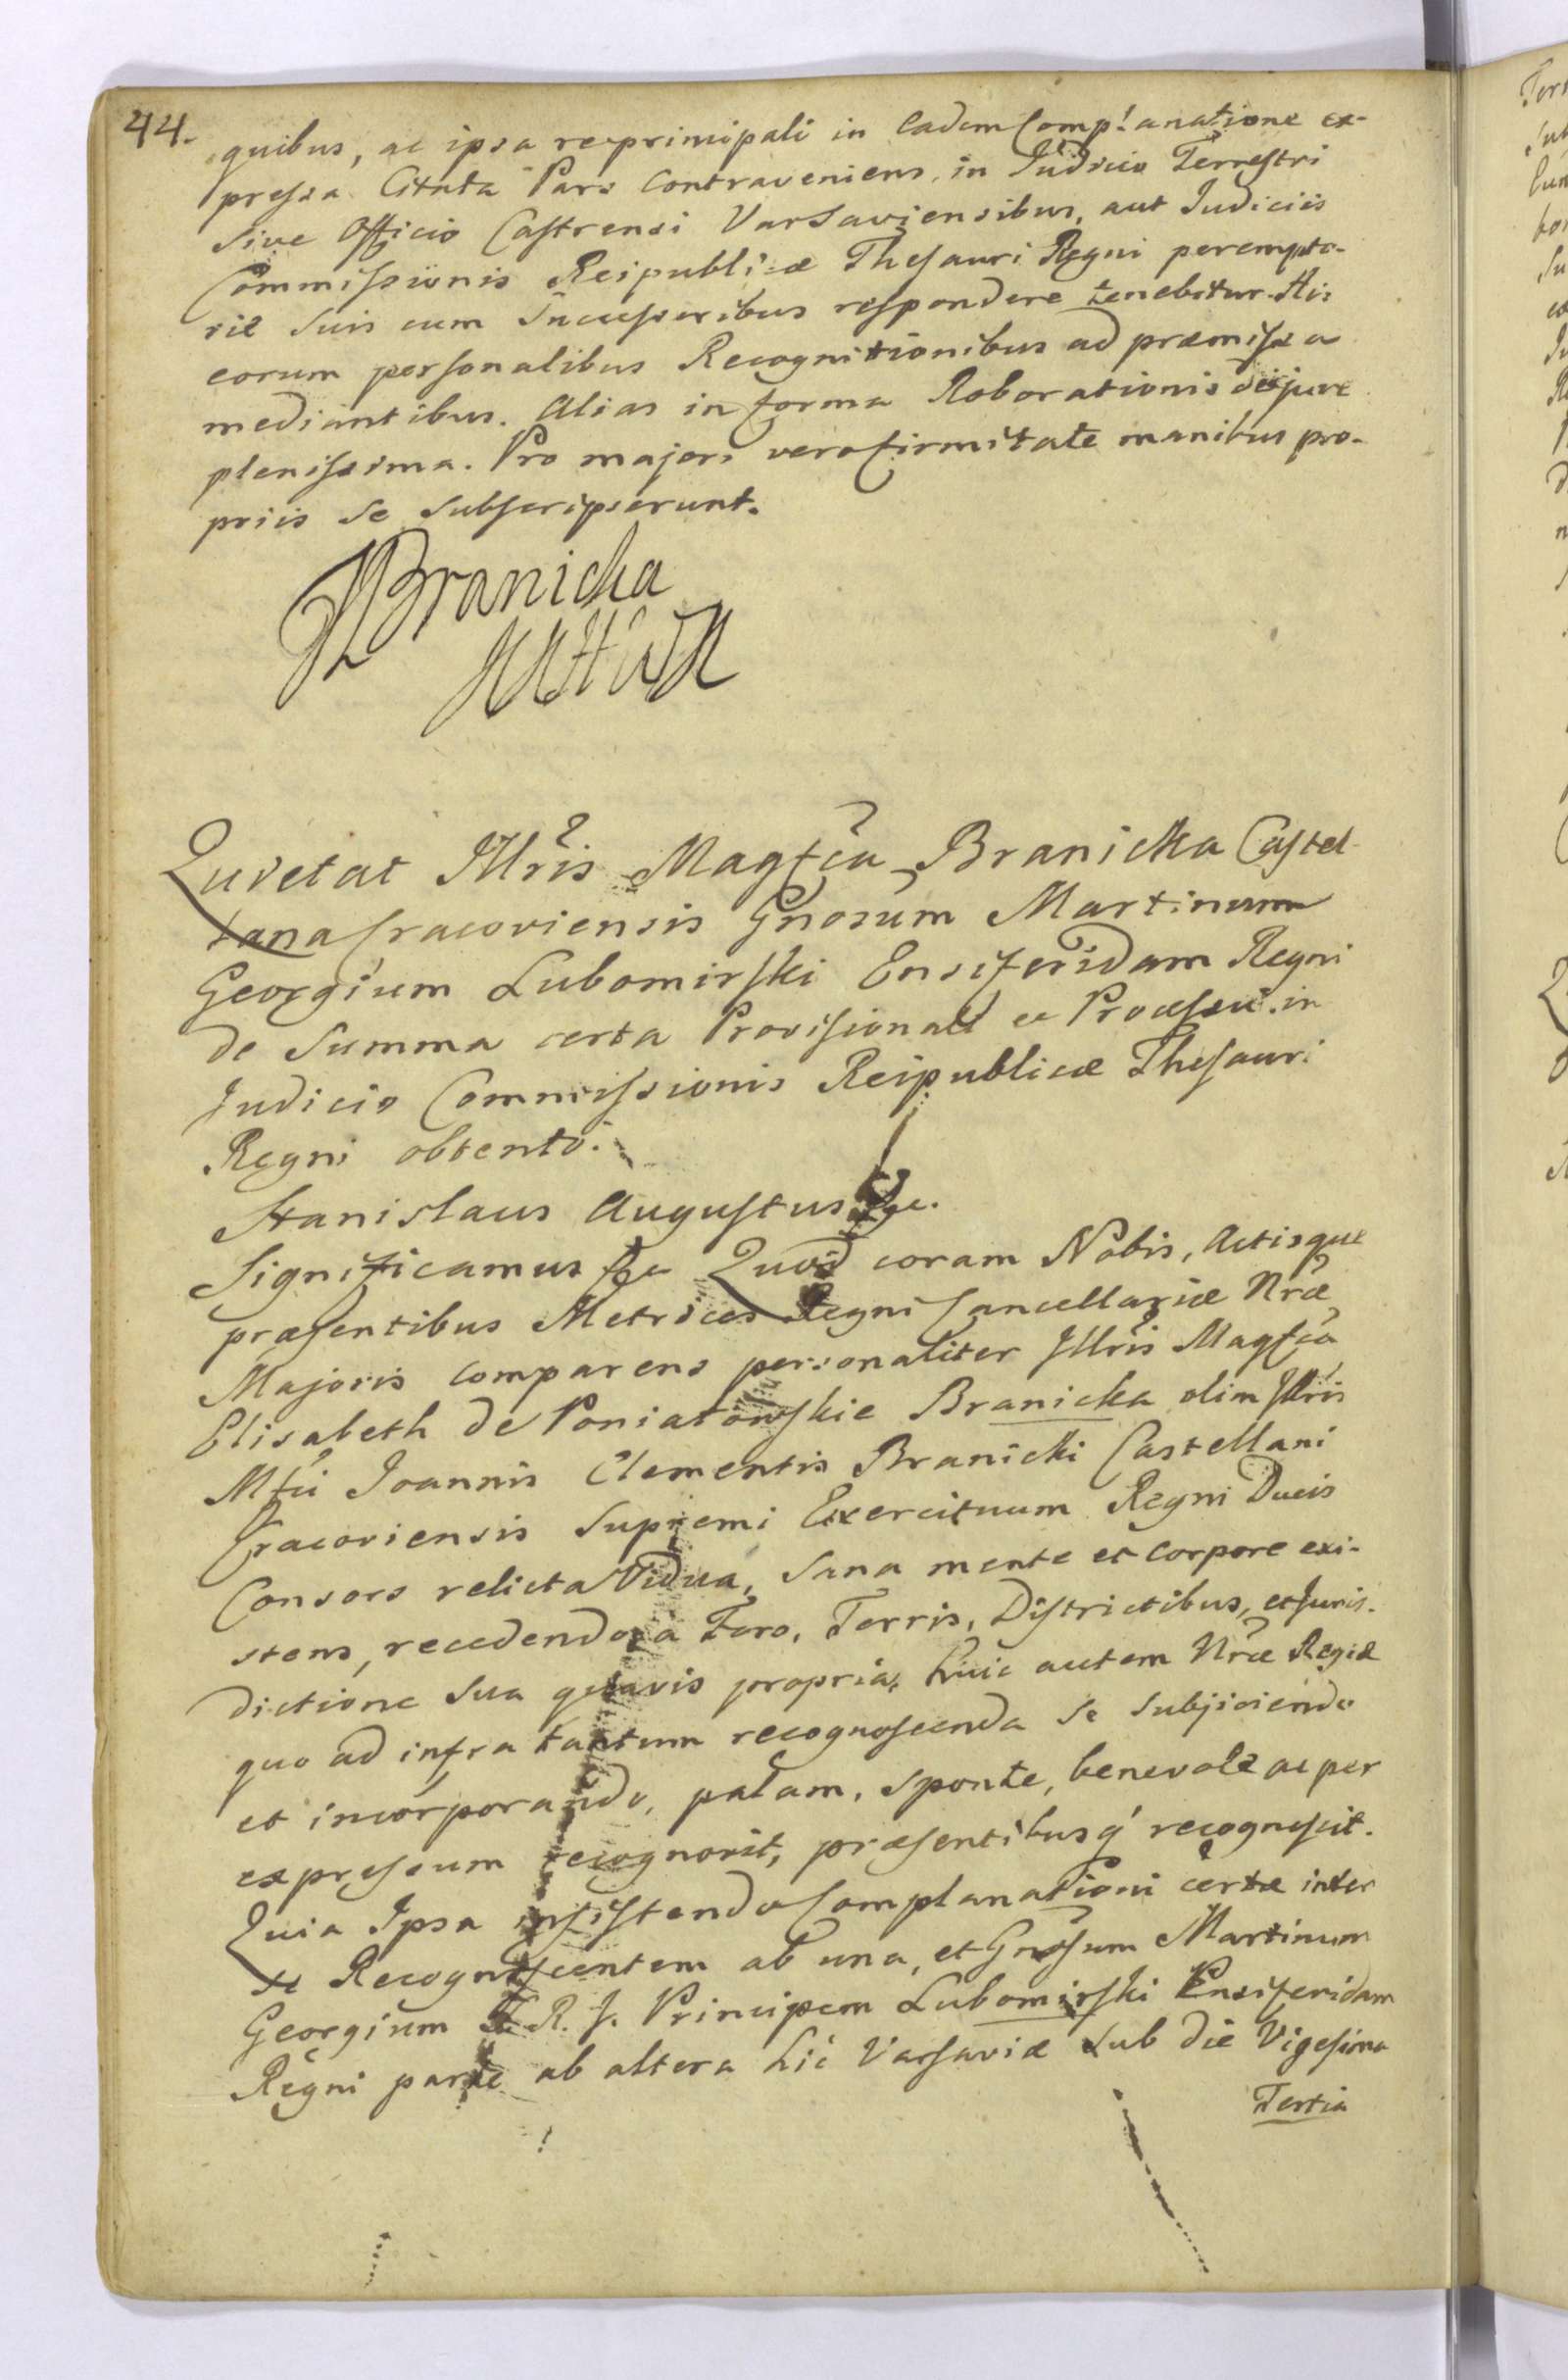 44.
quibus, ac ipsa re principali in eadem Complanatione ex-
pressa Citata Pars Contraveniens, in Judicio Terrestri
sive Officio Castrensi Varsaviensibus, aut Judiciis
Commissionis Reipublicæ Thesauri Regni perempto-
rie suis cum Successoribus respondere tenebitur. His
eorum personalibus Recognitionibus ad præmissa
mediantibus. Alias in forma Roborationis de jure
plenissima. Pro majori vero firmitate manibus pro-
priis se subscripserunt.
Branicka
Quietat Illris Magfca Branicka Castel-
lana Cracoviensis Gnosum Martinum
Georgium Lubomirski Ensiferidam Regni
de Summa certa Provisionali ex Processu in
Judicio Commissionis Reipublicæ Thesauri
Regni obtento.
Stanislaus Augustus &c.
Significamus &c Quod coram Nobis, Actisque
præsentibus Metrices Regni Cancellariæ Nræ
Majoris comparens personaliter Illris Magfca
Elisabeth de Poniatowskie Branicka olim Illris
Mfci Joannis Clementis Branicki Castellani
Cracoviensis Supremi Exercituum Regni Ducis
Consors relicta Vidua, sana mente et corpore exi-
stens, recedendo a Foro, Terris, Districtibus, et Juris-
dictione sua quavis propria, huic autem Nræ Regiæ
quo ad infra tantum recognoscenda se subjiciendo
et incorporando, palam, sponte, benevole ac per
expressum recognovit, præsentibusq' recognoscit.
Quia Ipsa insistendo Complanationi certæ inter
se Recognoscentem ab una, et Gnosum Martinum
Georgium S. R. J. Principem Lubomirski Ensiferidam
Regni parte ab altera hic Varsaviæ sub die Vigesima
Tertia